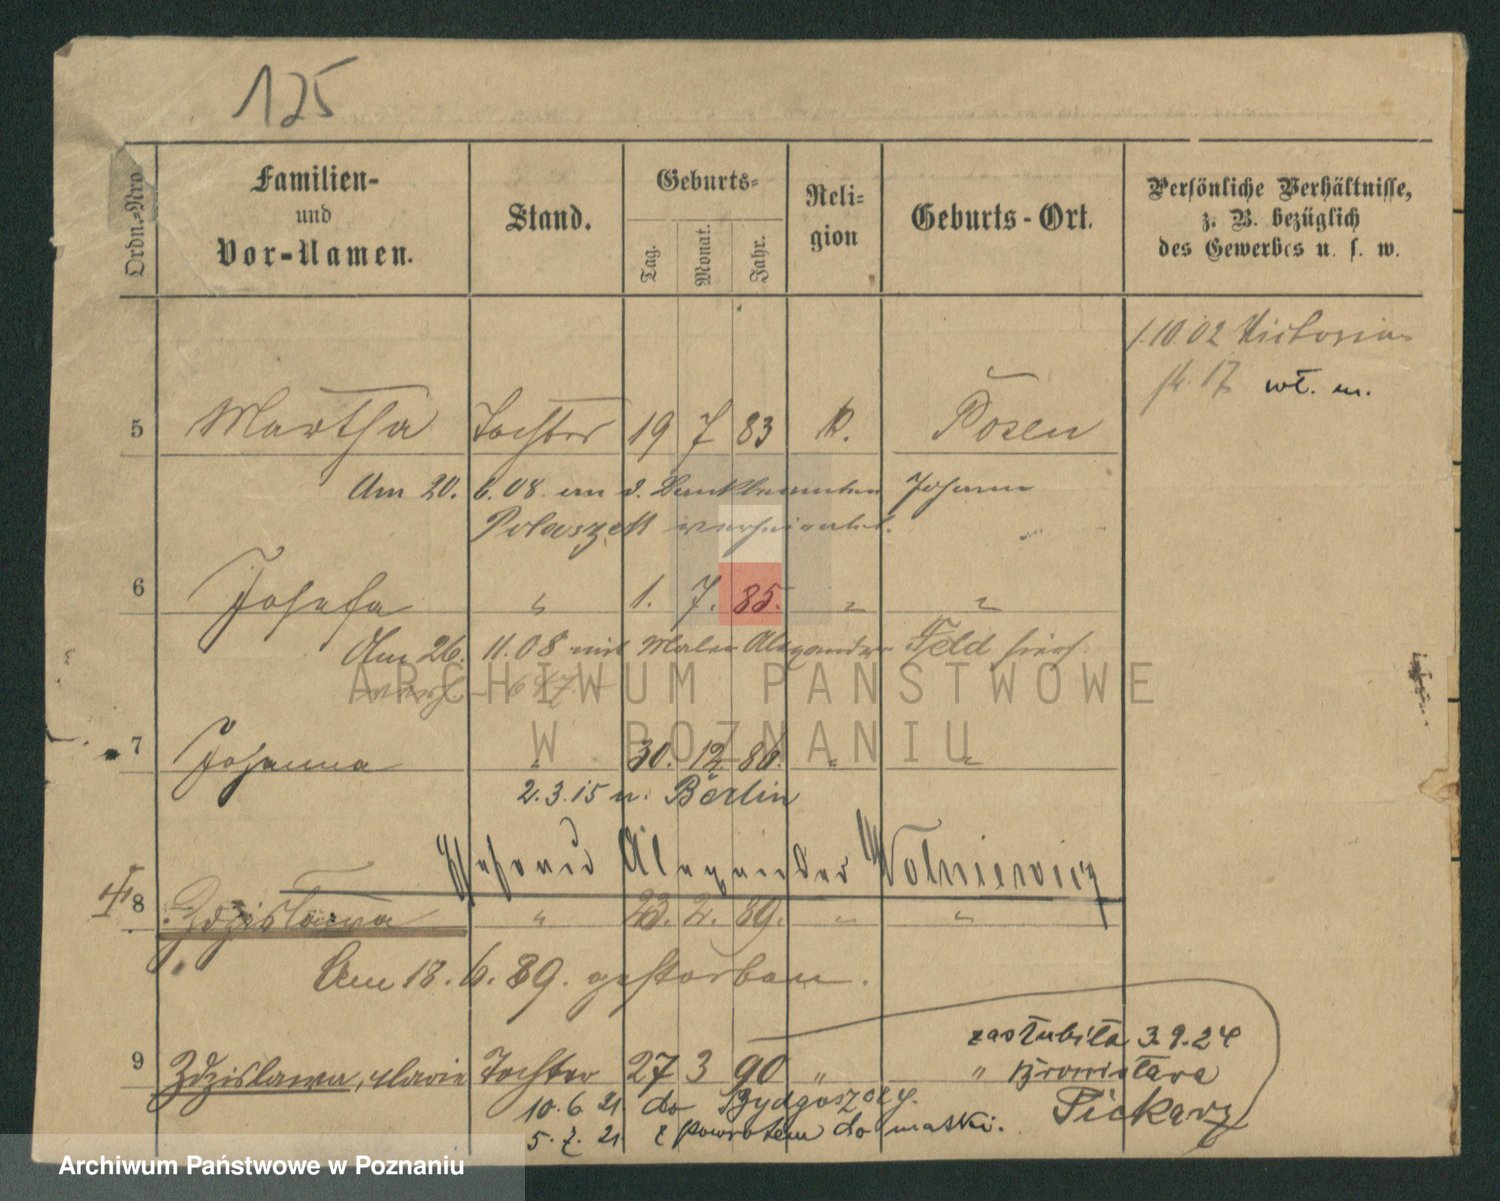 125
Ordn.-Nro.
Familien-
und
Vor-Namen.
Stand.
Geburts-
Tag.
Monat.
Jahr.
Reli-
gion
Geburts-Ort.
Persönliche Verhältnisse,
z. B. bezüglich
des Gewerbes u. s. w.
1.10.02 Victoria-
str. 17 wł. m.
5 Martha Tochter 19 7 83 K. Posen
Am 20. 6. 08 an d. Bankbeamten Johann
Polaszek verheiratet.
6 Josefa " 1. 7. 85. " "
Am 26. 11. 08 mit Maler Alexander Feld hier
7 Johanna " 30. 12. 86. " "
2.3.15 n. Berlin
Ehefrau Alexander Wolniewicz
8 Zdzislawa " 23. 2. 89. " "
Am 18. 6. 89. gestorben.
9 Zdzislawa, Marie Tochter 27 3 90 " "
zaślubiła 3.9.24
Bronisława
Piekarz
10.6.21 do Bydgoszczy.
5.7.21 z powrotem do matki.
ARCHIWUM PAŃSTWOWE
W POZNANIU
Archiwum Państwowe w Poznaniu